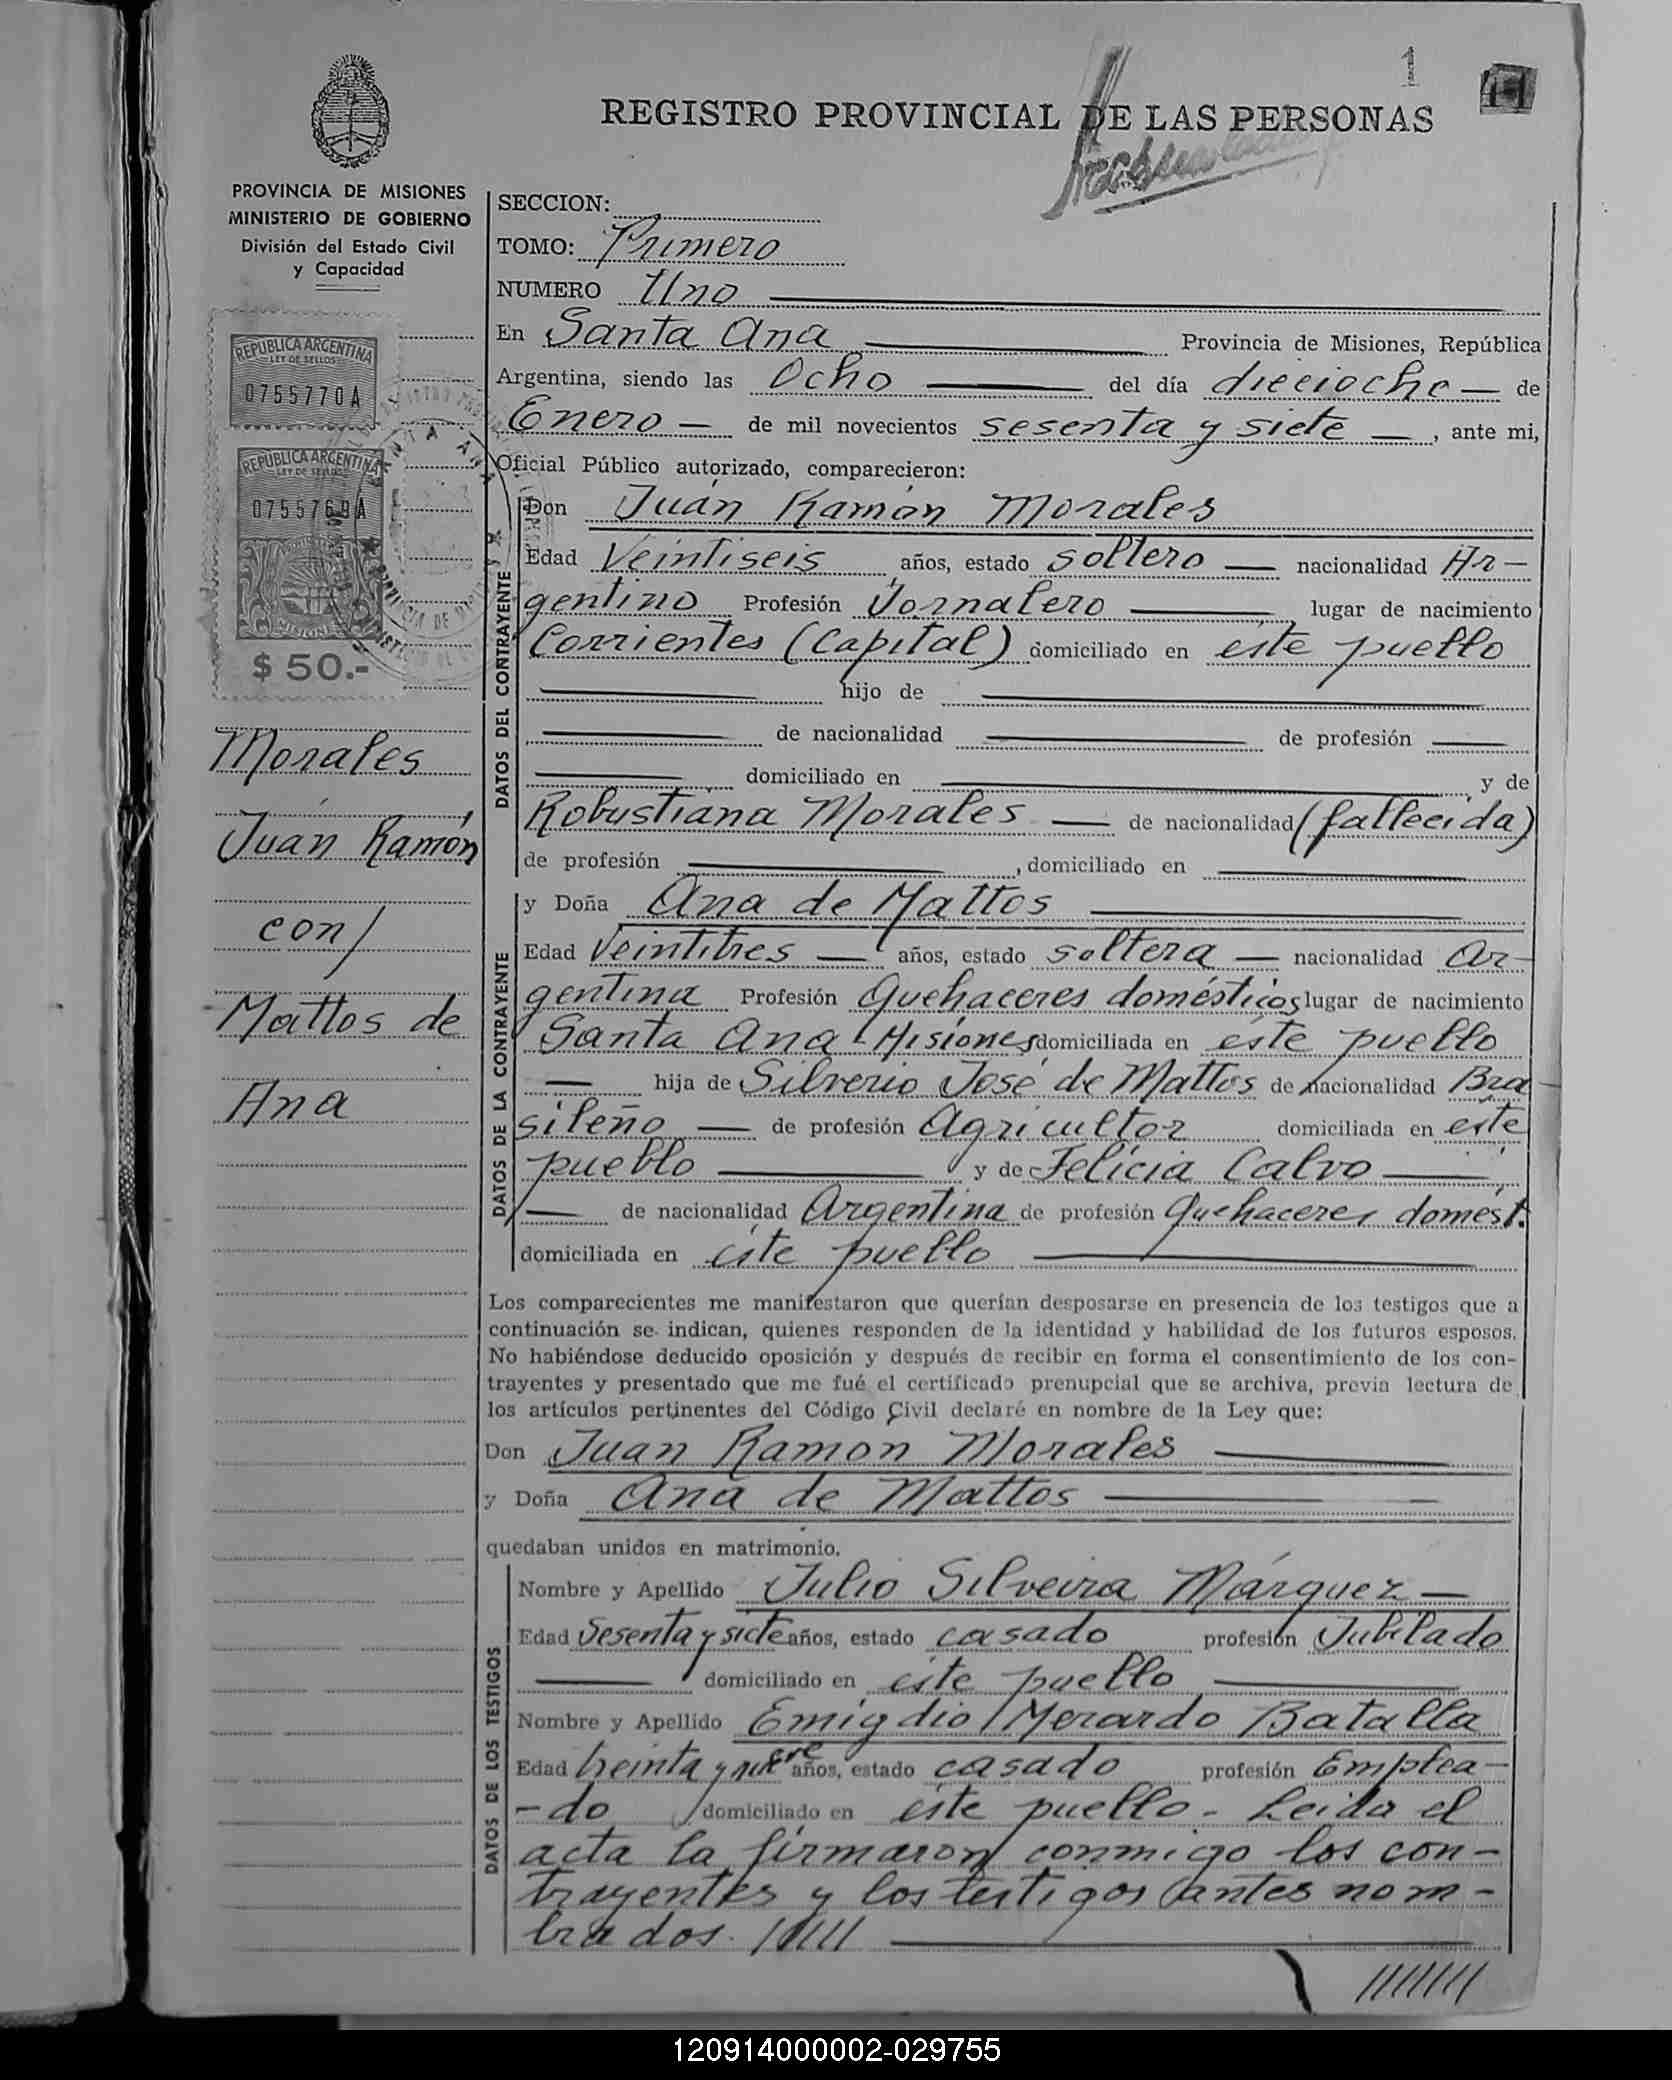 1
REGISTRO PROVINCIAL DE LAS PERSONAS
PROVINCIA DE MISIONES
MINISTERIO DE GOBIERNO
División del Estado Civil
y Capacidad
REPUBLICA ARGENTINA
LEY DE SELLOS
0755770A
REPUBLICA ARGENTINA
LEY DE SELLOS
0755769A
MISIONES
$ 50.-
Morales
Juán Ramón
con/
Mattos de
Ana
SECCION:
TOMO: Primero
NUMERO Uno
En Santa Ana Provincia de Misiones, República
Argentina, siendo las Ocho del día dieciocho — de
Enero — de mil novecientos sesenta y siete —, ante mi,
Oficial Público autorizado, comparecieron:
DATOS DEL CONTRAYENTE
Don Juán Ramón Morales
Edad Veintiseis años, estado soltero — nacionalidad Ar-
gentino Profesión Jornalero lugar de nacimiento
Corrientes (Capital) domiciliado en éste pueblo
hijo de
de nacionalidad de profesión
domiciliado en y de
Robustiana Morales — de nacionalidad (fallecida)
de profesión , domiciliado en
DATOS DE LA CONTRAYENTE
y Doña Ana de Mattos
Edad Veintitres — años, estado soltera — nacionalidad Ar-
gentina Profesión Quehaceres domésticos lugar de nacimiento
Santa Ana - Misiones domiciliada en éste pueblo
— hija de Silverio José de Mattos de nacionalidad Bra-
sileño — de profesión Agricultor domiciliada en éste
pueblo y de Felicia Calvo
— de nacionalidad Argentina de profesión Quehaceres domést.
domiciliada en éste pueblo
Los comparecientes me manifestaron que querían desposarse en presencia de los testigos que a
continuación se indican, quienes responden de la identidad y habilidad de los futuros esposos.
No habiéndose deducido oposición y después de recibir en forma el consentimiento de los con-
trayentes y presentado que me fué el certificado prenupcial que se archiva, previa lectura de
los artículos pertinentes del Código Civil declaré en nombre de la Ley que:
Don Juan Ramón Morales
y Doña Ana de Mattos
quedaban unidos en matrimonio.
DATOS DE LOS TESTIGOS
Nombre y Apellido Julio Silveira Márquez —
Edad Sesenta y siete años, estado casado profesión Jubilado
domiciliado en éste pueblo
Nombre y Apellido Emigdio Merardo Batalla
Edad treinta y nueve años, estado casado profesión Emplea-
-do domiciliado en éste pueblo - Leida el
acta la firmaron conmigo los con-
trayentes y los testigos antes nom-
brados.
120914000002-029755